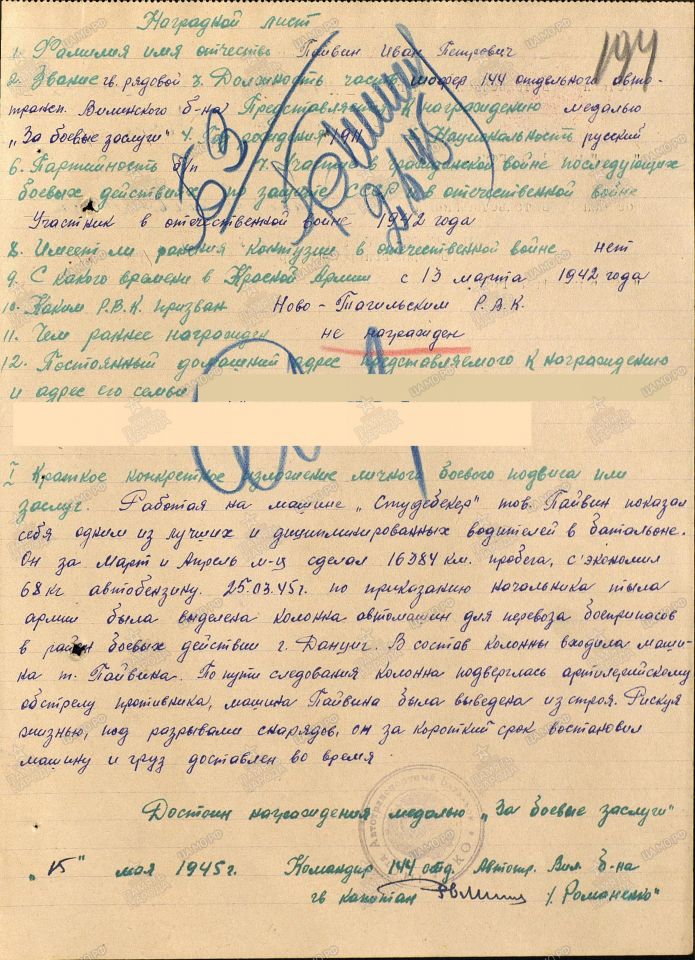 Наградной лист
194
1. Фамилия имя отчество Пайвин Иван Петрович
2. Звание гв. рядовой 3. Должность часть шофер 144 отдельного авто-
трансп. Виленского б-на Представляется к награждению медалью
„За боевые заслуги" 4. Год рождения 1911 Национальность русский
6. Партийность б/п 7. Участие в гражданской войне последующих
боевых действиях по защите СССР и в отечественной войне
Участник в отечественной войне 1942 года
8. Имеет ли ранения контузии в отечественной войне нет
9. С какого времени в Красной Армии с 13 марта 1942 года
10. Каким Р.В.К. призван Ново-Тагильским Р.В.К.
11. Чем раннее награжден не награжден
12. Постоянный домашний адрес представляемого к награждению
и адрес его семьи
I Краткое конкретное изложение личного боевого подвига или
заслуг. Работая на машине „Студебекер" тов. Пайвин показал
себя одним из лучших и дисциплинированных водителей в батальоне.
Он за Март и Апрель м-ц сделал 16384 км. пробега, с'экономил
68 кг автобензину. 25.03.45 г. по приказанию начальника тыла
армии была выделена колонна автомашин для перевоза боеприпасов
в район боевых действии г. Данциг. В состав колонны входила маши-
на т. Пайвина. По пути следования колонна подверглась артилерийскому
обстрелу противника, машина Пайвина была выведена из строя. Рискуя
жизнью, под разрывами снарядов, он за короткий срок востановил
машину и груз доставлен во время.
Достоин награждения медалью „За боевые заслуги"
„15" мая 1945 г. Командир 144 отд. Автотр. Вил. б-на
гв капитан / Романенко"